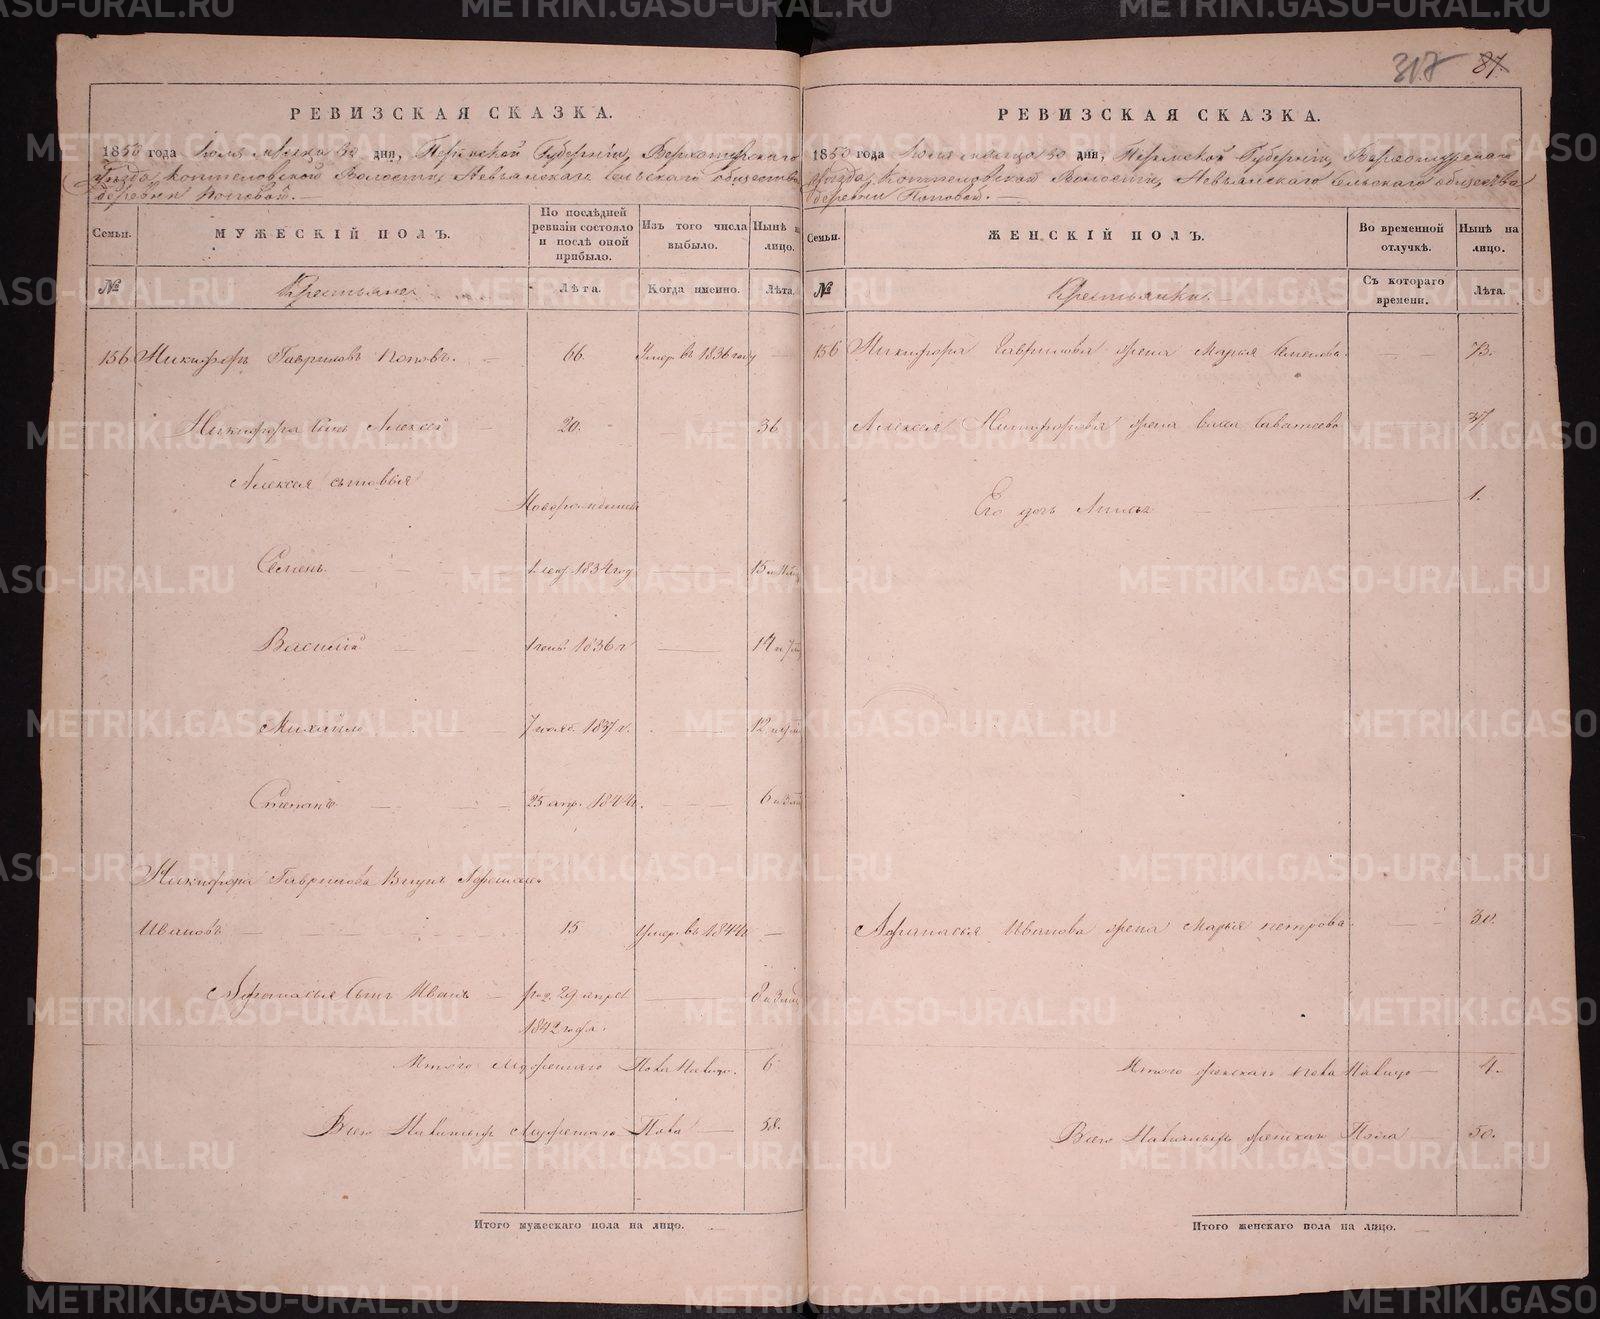 317 87
РЕВИЗСКАЯ СКАЗКА.
1850 года Іюля месяца 30 дня, Пермской Губерніи, Верхотурскаго
уезда, Коптеловской Волости, Невьянскаго сельскаго общества
деревни Поповой.
Семьи.
МУЖЕСКІЙ ПОЛЪ.
По послѣдней ревизіи состояло и послѣ оной прибыло.
Изъ того числа выбыло.
Нынѣ на лицо.
№
Крестьяне
Лѣта.
Когда именно.
Лѣта.
156 Никифоръ Гавриловъ Поповъ. 66. Умер. въ 1836 году
Никифора сынъ Алексей 20. 36
Алексея сыновья
Новорожденные
Семенъ 1834 год. 15
Василій 1836 г 14
Михайло 7 нояб. 1837 г. 12
Степанъ 25 апр. 1844 г. 6
Никифора Гаврилова Внукъ Афанасей
Ивановъ 15 Умер. въ 1844 г.
Афанасья сынъ Иванъ 29 апреля 8
1842 года.
Итого Мужескаго Пола Налицо. 6
Всего Мужескаго Пола 38.
Итого мужескаго пола на лицо.
РЕВИЗСКАЯ СКАЗКА.
1850 года Іюля месяца 30 дня, Пермской Губерніи, Верхотурскаго
уезда, Коптеловской Волости, Невьянскаго сельскаго общества
деревни Поповой.
Семьи.
ЖЕНСКІЙ ПОЛЪ.
Во временной отлучкѣ.
Нынѣ на лицо.
№
Крестьянки.
Съ котораго времени.
Лѣта.
156 Никифора Гаврилова жена Марья Семенова 73.
Алексея Никифорова жена Саватеева 37
Его дочь 1.
Афанасея Иванова жена Марья Петрова 30.
Итого женскаго пола Налицо 4.
Всего женскаго Пола 50.
Итого женскаго пола на лицо.
METRIKI.GASO-URAL.RU